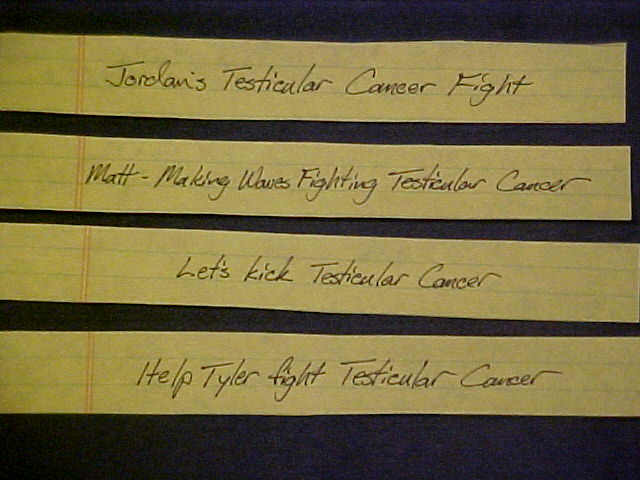 Jordan's Testicular Cancer Fight
Matt - Making Waves Fighting Testicular Cancer
Let's kick Testicular Cancer
Help Tyler fight Testicular Cancer